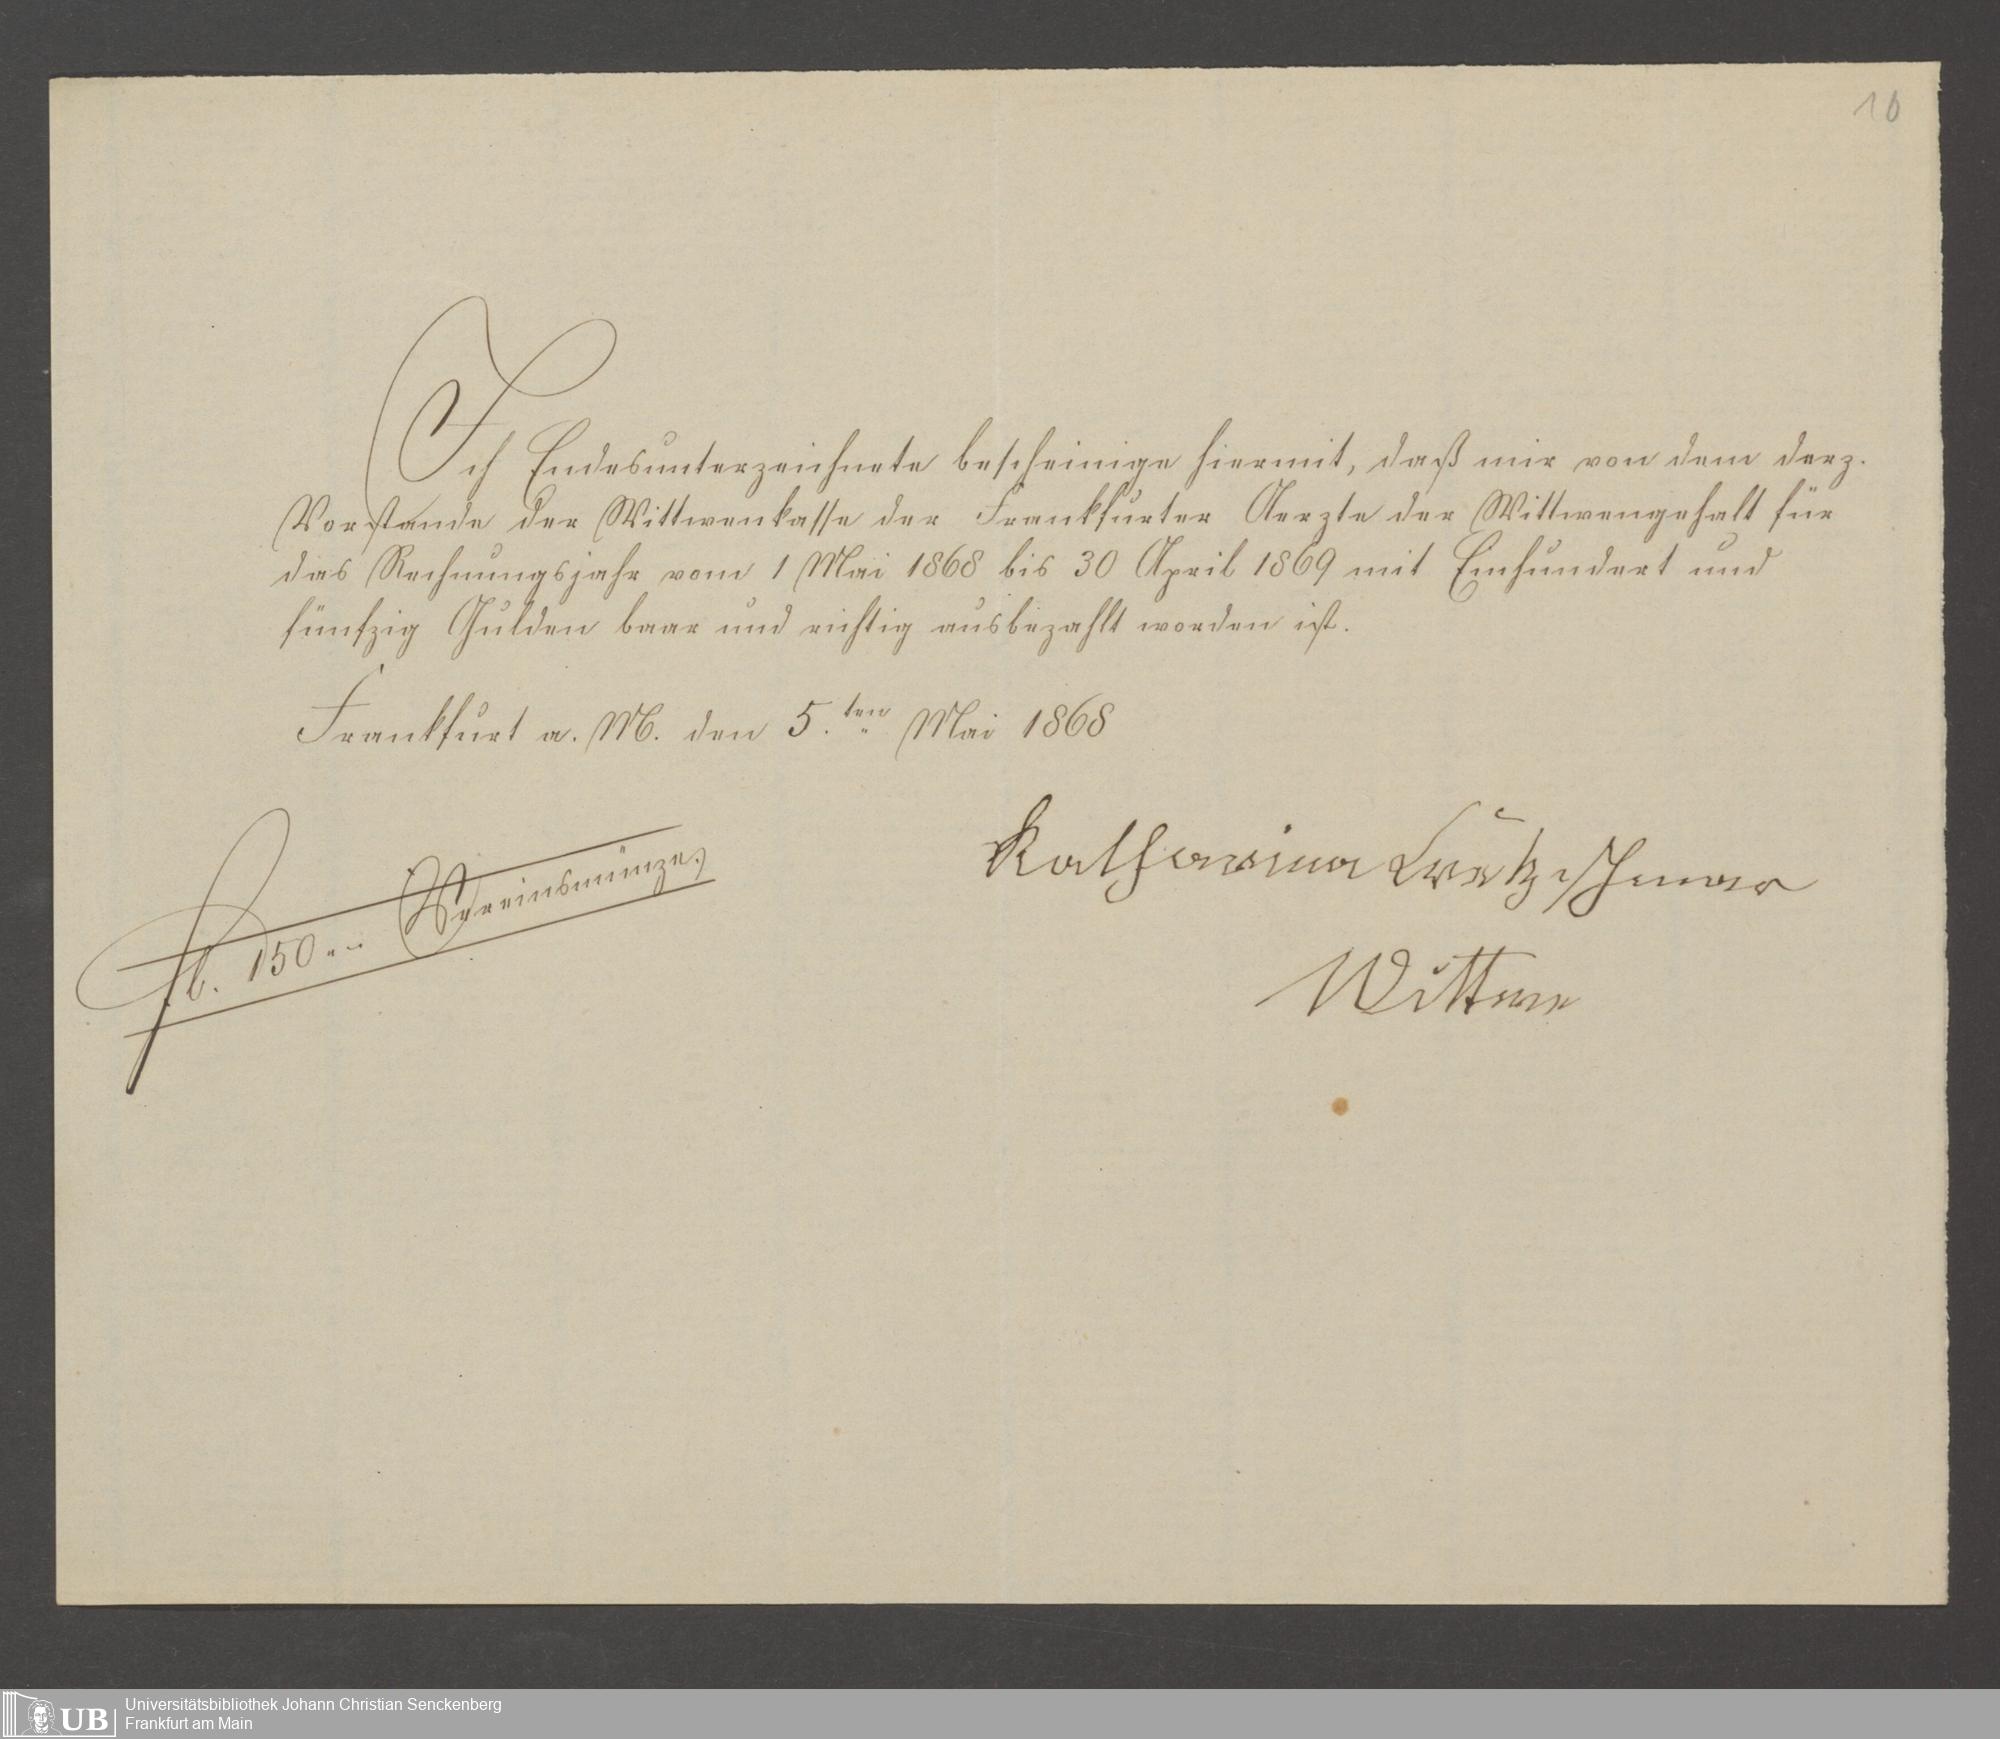 10
Ich Endesunterzeichnete bescheinige hiermit, daß mir von dem derz.
Vorstande der Wittwenkasse der Frankfurter Aerzte der Wittwengehalt für
das Rechnungsjahr vom 1 Mai 1868 bis 30 April 1869 mit Einhundert und
fünfzig Gulden baar und richtig ausbezahlt worden ist.
Frankfurt a. M. den 5.ten Mai 1868
fl. 150 „ – Vereinsmünze.
Katharina
Wittwe
UB
Universitätsbibliothek Johann Christian Senckenberg
Frankfurt am Main